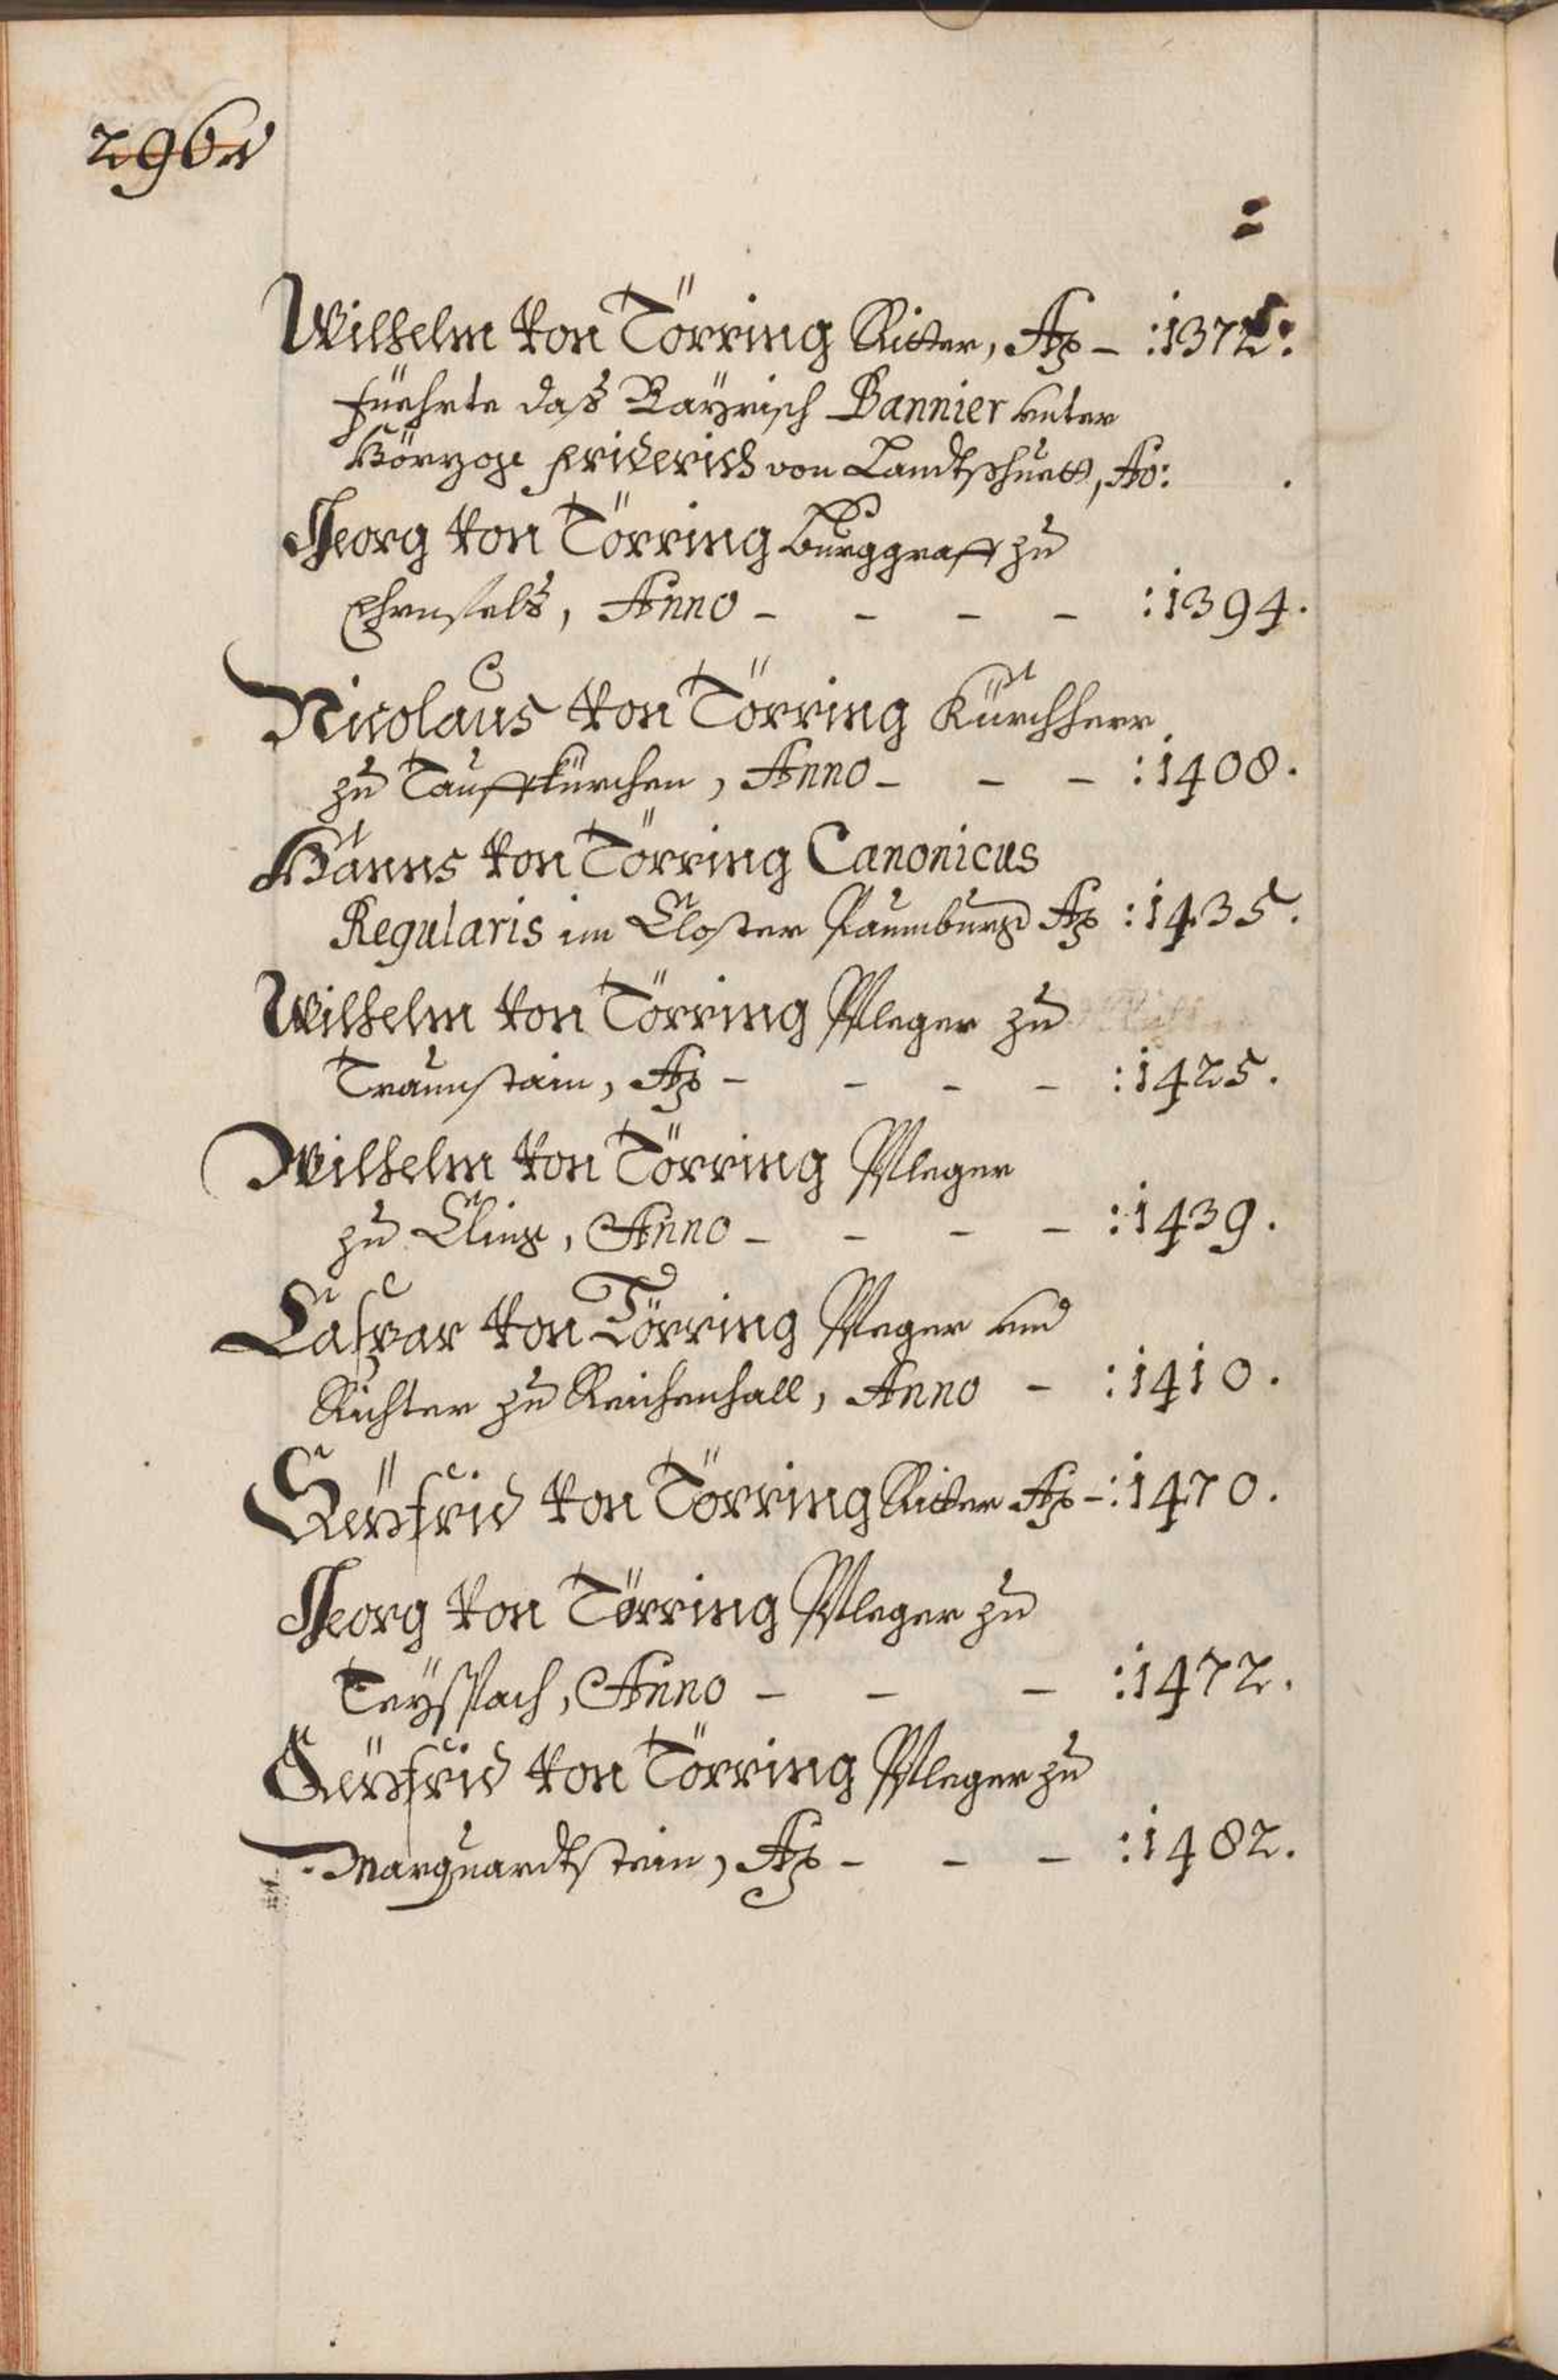 296v
=
Wilhelm von Törring Ritter, Ao – :1375:
füehrte daß Bayrisch Bannier unter
Hörzog Friderich von Landtshuett, Ao: .
Georg von Törring Burggraff zu
Ehrnfelß, Anno – – – – :1394.
Nicolaus von Törring Kürchherr
zu Tauffkürchen, Anno – – – :1408.
Hanns von Törring Canonicus
Regularis im Closter Paumburg Ao :1435.
Wilhelm von Törring Pfleger zu
Traunstain, Ao – – – – :1425.
Wilhelm von Törring Pfleger
zu Cling, Anno – – – – :1439.
Caspar von Törring Pfleger und
Richter zu Reichenhall, Anno – :1410.
Seÿfrid von Törring Ritter Ao – :1470.
Georg von Törring Pfleger zu
Teyspach, Anno – – – :1472.
Seÿfrid von Törring Pfleger zu
Marquardtstein, Ao – – – :1482.